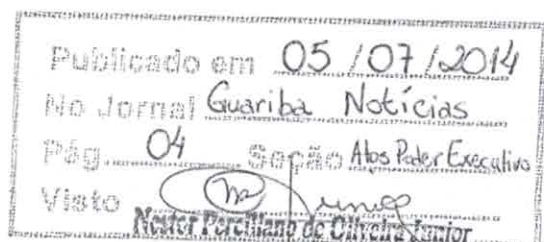 Publicado em 05 / 07 / 2014
No Jornal Guariba Notícias
Pág. 04 Seção Atos Poder Executivo
Visto
Nestor Percilliano de Oliveira Junior